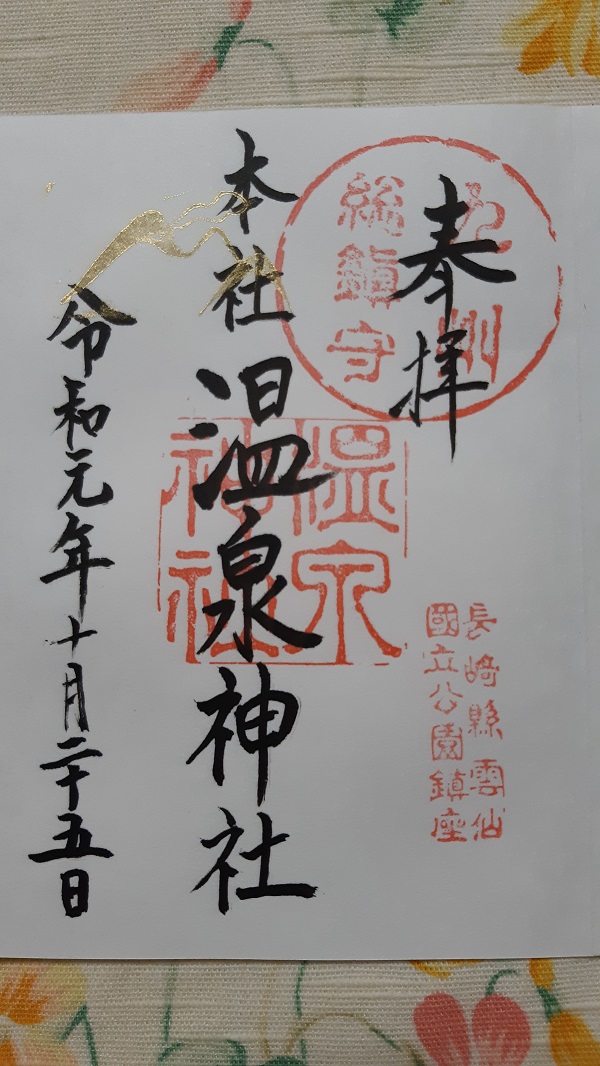 奉拝
九州
総鎮守
本社温泉神社
温泉
神社
長崎縣雲仙
國立公園鎮座
令和元年十月二十五日